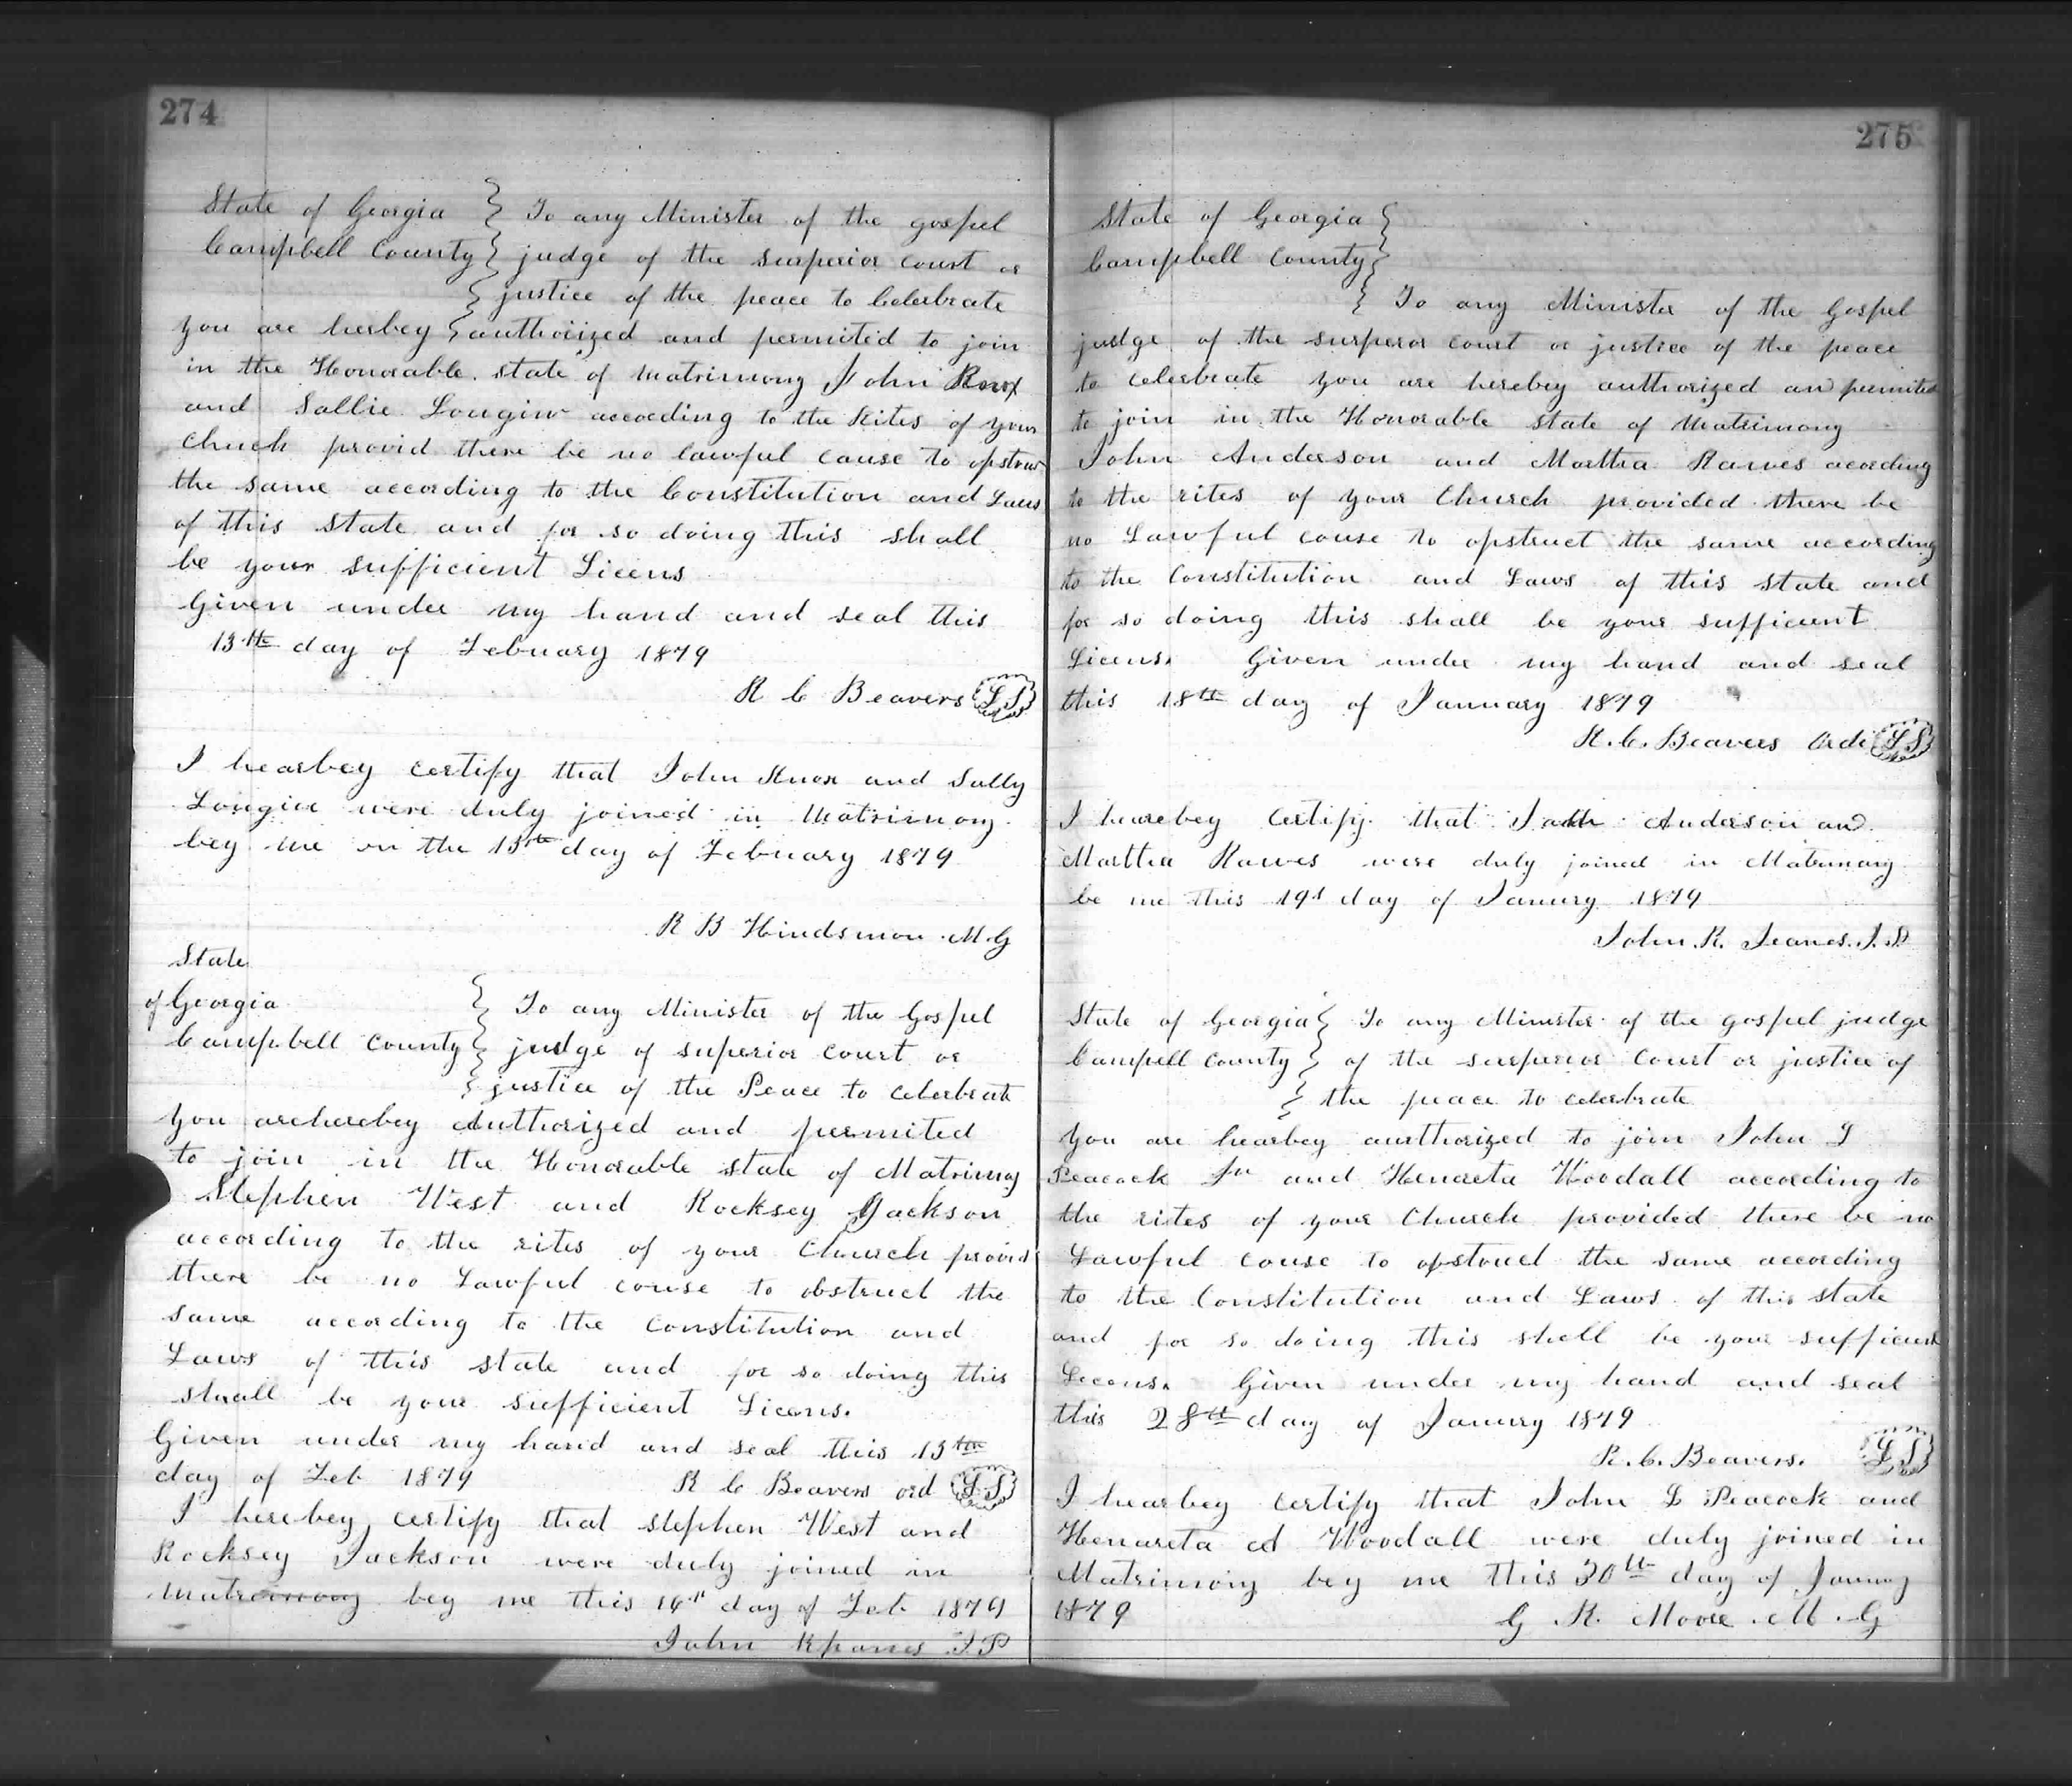 274
State of Georgia } To any Minister of the gospel
Campbell County } judge of the surperior court or
} justice of the peace to Celerbrate
you are herbey } authorized and permited to join
in the Honorable state of Matrimony John Knox
and Sallie Longino according to the Rites of your
Chuch provid there be no lawful cause to opstruc
the same according to the Constitution and Laws
of this State and for so doing this shall
be your sufficient Licens
Given under my hand and seal this
13th day of Febuary 1879
R C Beavers L S
I hearbey certify that John Knox and Sally
Longino were duly joined in Matrimony
bey me on the 13th day of February 1879
R B Hindsmon M.G
State
of Georgia } To any Minister of the Gospel
Campbell County } judge of superior court or
} justice of the Peace to celerbrate
you are herebey Authorized and permited
to join in the Honorable state of Matrimoy
Stephen West and Rocksey Jackson
according to the rites of your Church provid
there be no Lawful couse to obstruct the
same according to the Constitution and
Laws of this state and for so doing this
shall be your sufficient Licens.
Given under my hand and seal this 13th
day of Feb 1879 R C Beavers ord L S
I herebey certify that Stephen West and
Rocksey Jackson were duly joined in
Matrimony bey me this 14th day of Feb 1879
John J P
275
State of Georgia }
Campbell County }
} To any Minister of the Gospel
judge of the surperor court or justice of the peace
to celerbrate you are herebey authorized and permited
to join in the Honorable state of Matrimony
John Anderson and Martha Raves acording
to the rites of your Church provided there be
no Lawful couse to opstruct the same according
to the Constitution and Laws of this state and
for so doing this shall be your sufficient
Licens. Given under my hand and seal
this 18th day of January 1879
R. C. Beavers Orde L S
I hearebey Certify that Anderson and
Martha Raves were duly joined in Matrimony
be me this 19t day of Januury 1879
John. R. Jeanes. J. P
State of Georgia } To any Minister of the gospel judge
Campell County } of the surperior Court or justice of
} the peace to celerbrate
You are hearbey aurthorized to join John L
Peacock Jr and Henareta Woodall according to
the rites of your Church provided there be no
Lawful couse to opstruct the same according
to the Constitution and Laws of this state
and for so doing this shall be your sufficient
Licens. Given under my hand and seal
this 28th day of Januury 1879
R. C. Beavers. L S
I hearbey certify that John L Peacock and
Henareta Woodall were duly joined in
Matrimony bey me this 30th day of Januy
1879 G. R. Moore. M. G